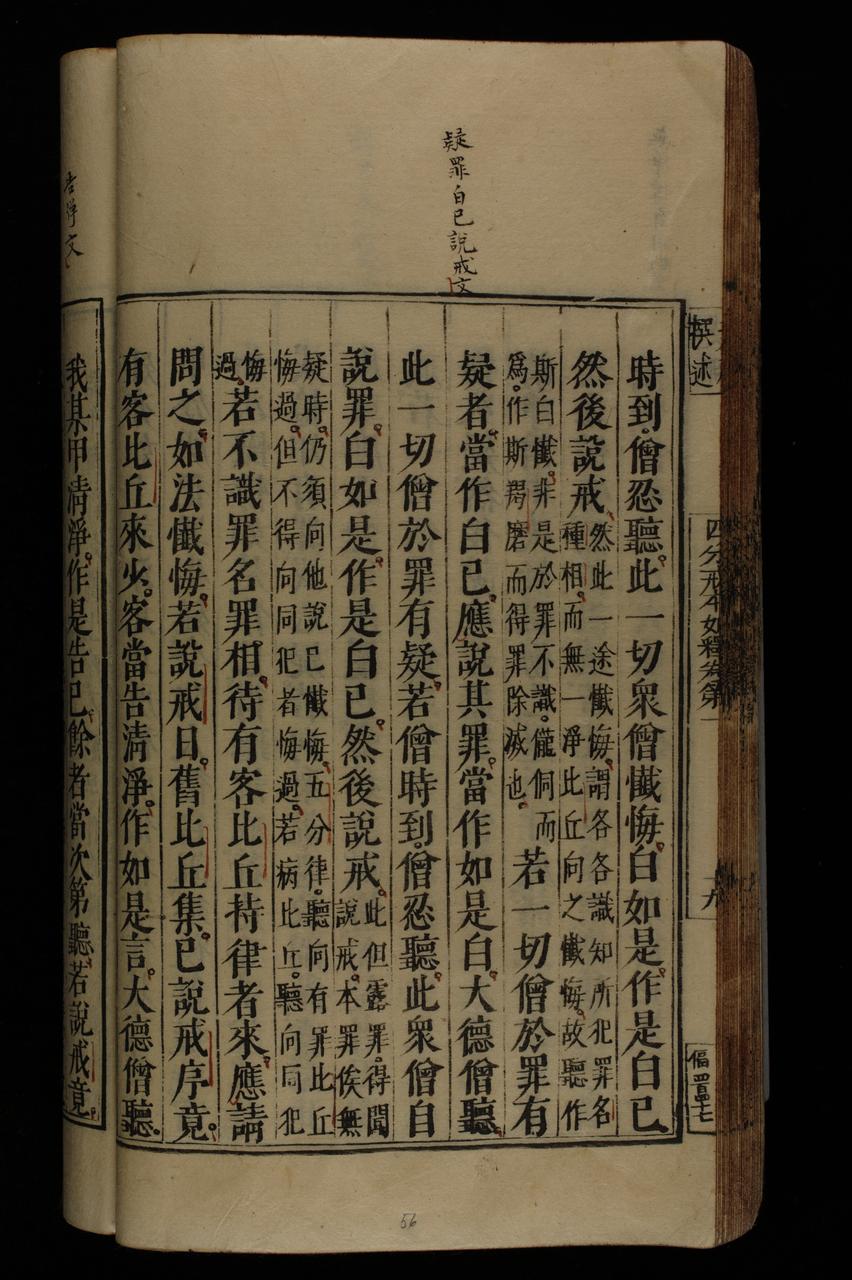 疑罪白已說戒文
撰述
四分戒本如釋卷第一
十九
時到僧忍聽此一切衆僧懺悔白如是作是白已
然後說戒
然此一途懺悔謂各各識知所犯罪名
種相而無一淨比丘向之懺悔故聽作
斯白懺非是於罪不識儱侗而
爲作斯羯磨而得罪除滅也
若一切僧於罪有
疑者當作白已應說其罪當作如是白大德僧聽
此一切僧於罪有疑若僧時到僧忍聽此衆僧自
說罪白如是作是白已然後說戒
此但露罪得聞
說戒本罪俟無
疑時仍須向他說已懺悔五分律聽向有罪比丘
悔過但不得向同犯者悔過若病比丘聽向同犯
悔
過
若不識罪名罪相待有客比丘持律者來應請
問之如法懺悔若說戒日舊比丘集已說戒序竟
有客比丘來少客當告清淨作如是言大德僧聽
我某甲清淨作是告已餘者當次第聽若說戒竟
告淨文
56